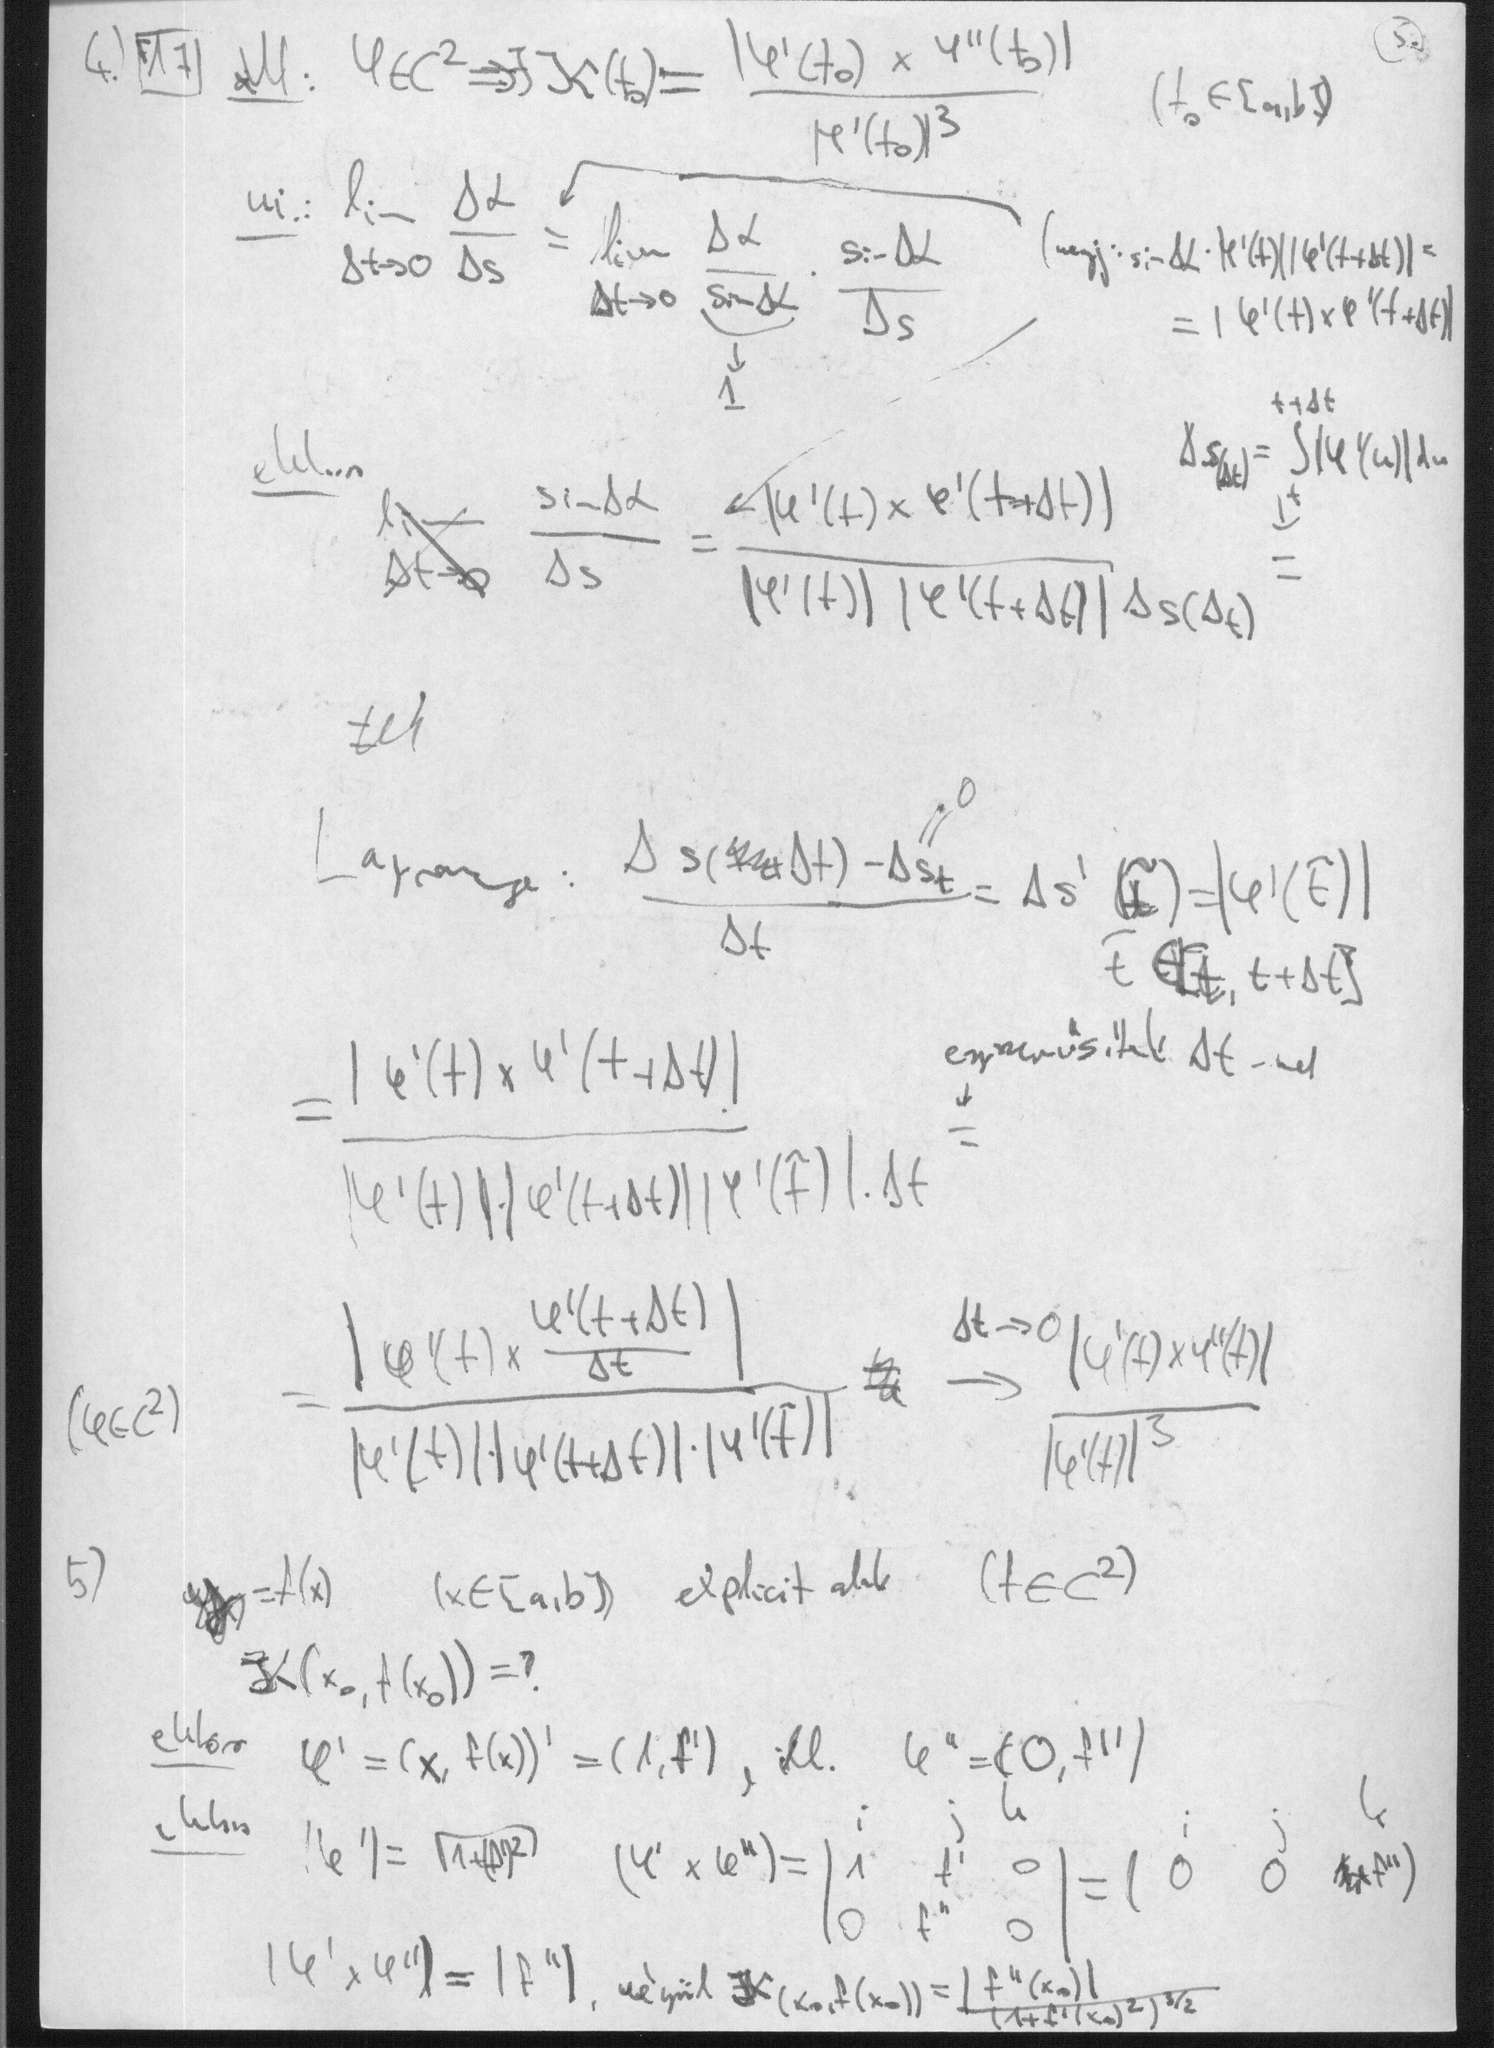 5.
4.) 17 áll: φ∈C² ⇒ ∃ K(t₀) = |φ'(t₀) × φ''(t₀)| / |φ'(t₀)|³ (t₀ ∈ [a,b])
lim Δt→0 Δα/Δs = lim Δt→0 Δα/sinΔα · sinΔα/Δs (megj: sinΔα · |φ'(t)| |φ'(t+Δt)| =
= |φ'(t) × φ'(t+Δt)|
↓
1
ekkor sinΔα/Δs = |φ'(t) × φ'(t+Δt)| / |φ'(t)| |φ'(t+Δt)| Δs(Δt) =
Δs(Δt) = ∫ₜ^{t+Δt} |φ'(u)| du
Lagrange: Δs(Δt) − Δsₜ / Δt = Δs'(t̃) = |φ'(t̃)|
0
t̃ ∈ [t, t+Δt]
= |φ'(t) × φ'(t+Δt)| / |φ'(t)|·|φ'(t+Δt)| |φ'(t̃)|·Δt = egyszerűsítünk Δt-vel
(φ∈C²) = |φ'(t) × φ'(t+Δt)/Δt| / |φ'(t)|·|φ'(t+Δt)|·|φ'(t̃)| → Δt→0 |φ'(t)×φ''(t)| / |φ'(t)|³
5) = f(x) (x∈[a,b]) explicit alak (f∈C²)
K(x₀, f(x₀)) = ?
ekkor φ' = (x, f(x))' = (1, f'), ill. φ'' = (0, f'')
ekkor |φ'| = √1+(f')² (φ' × φ'') = | i j k 1 f' 0 0 f'' 0 | = ( i 0 j 0 k f'')
|φ' × φ''| = |f''|, végül K(x₀, f(x₀)) = |f''(x₀)| / (1+f'(x₀)²)^{3/2}